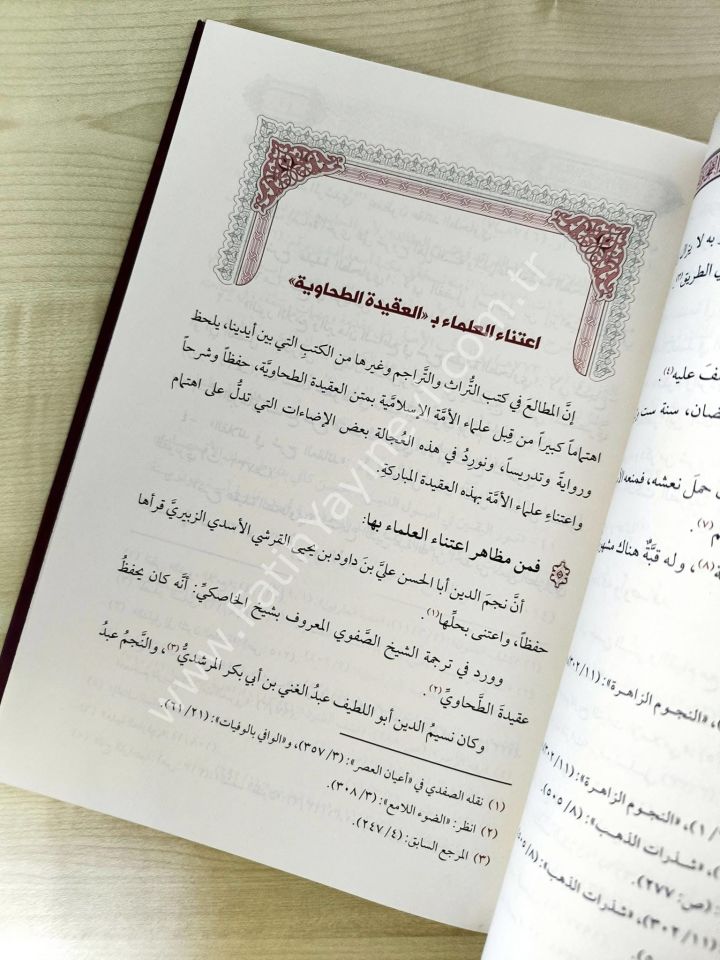 اعتناء العلماء بـ «العقيدة الطحاوية»
إنَّ المطالعَ في كتب التُّراث والتَّراجم وغيرها من الكتبِ التي بين أيدينا، يلحظ
اهتماماً كبيراً من قِبل علماء الأمَّة الإسلاميَّة بمتن العقيدة الطحاويَّة، حفظاً وشرحاً
وروايةً وتدريساً، ونورِدُ في هذه العُجالة بعض الإضاءات التي تدلُّ على اهتمام
واعتناءِ علماء الأمَّة بهذه العقيدة المباركةِ.
فمن مظاهر اعتناء العلماء بها:
أنَّ نجمَ الدين أبا الحسن عليَّ بنَ داود بن يحيى القرشي الأسدي الزبيريَّ قرأها
حفظاً، واعتنى بحلِّها(١).
وورد في ترجمة الشيخ الصَّفوي المعروف بشيخ الخاصكيِّ: أنَّه كان يحفظُ
عقيدةَ الطَّحاويِّ(٢).
وكان نسيمُ الدين أبو اللطيف عبدُ الغني بن أبي بكر المرشديُّ(٣)، والنَّجمُ عبدُ
(١) نقله الصفدي في «أعيان العصر»: (٣/ ٣٥٧)، و«الوافي بالوفيات»: (٢١/ ٦١).
(٢) انظر: «الضوء اللامع»: (٣/ ٣٠٨).
(٣) المرجع السابق: (٤/ ٢٤٧).
به لا يزال
ي الطريق(٣)
ف عليه(٤).
ضان، سنة ست
حملَ نعشه، فمنعه
م(٧).
(٨)، وله قبَّةٌ هناك
«النجوم الزاهرة»: (١١/ ٢٠٢)
«النجوم الزاهرة»:
«شذرات الذهب»: (٨/ ٥٠٥)
(ص: ٢٧٧).
«شذرات الذهب»:
(١١/ ٢٠٢)
www.FatihYayinevi.com.tr